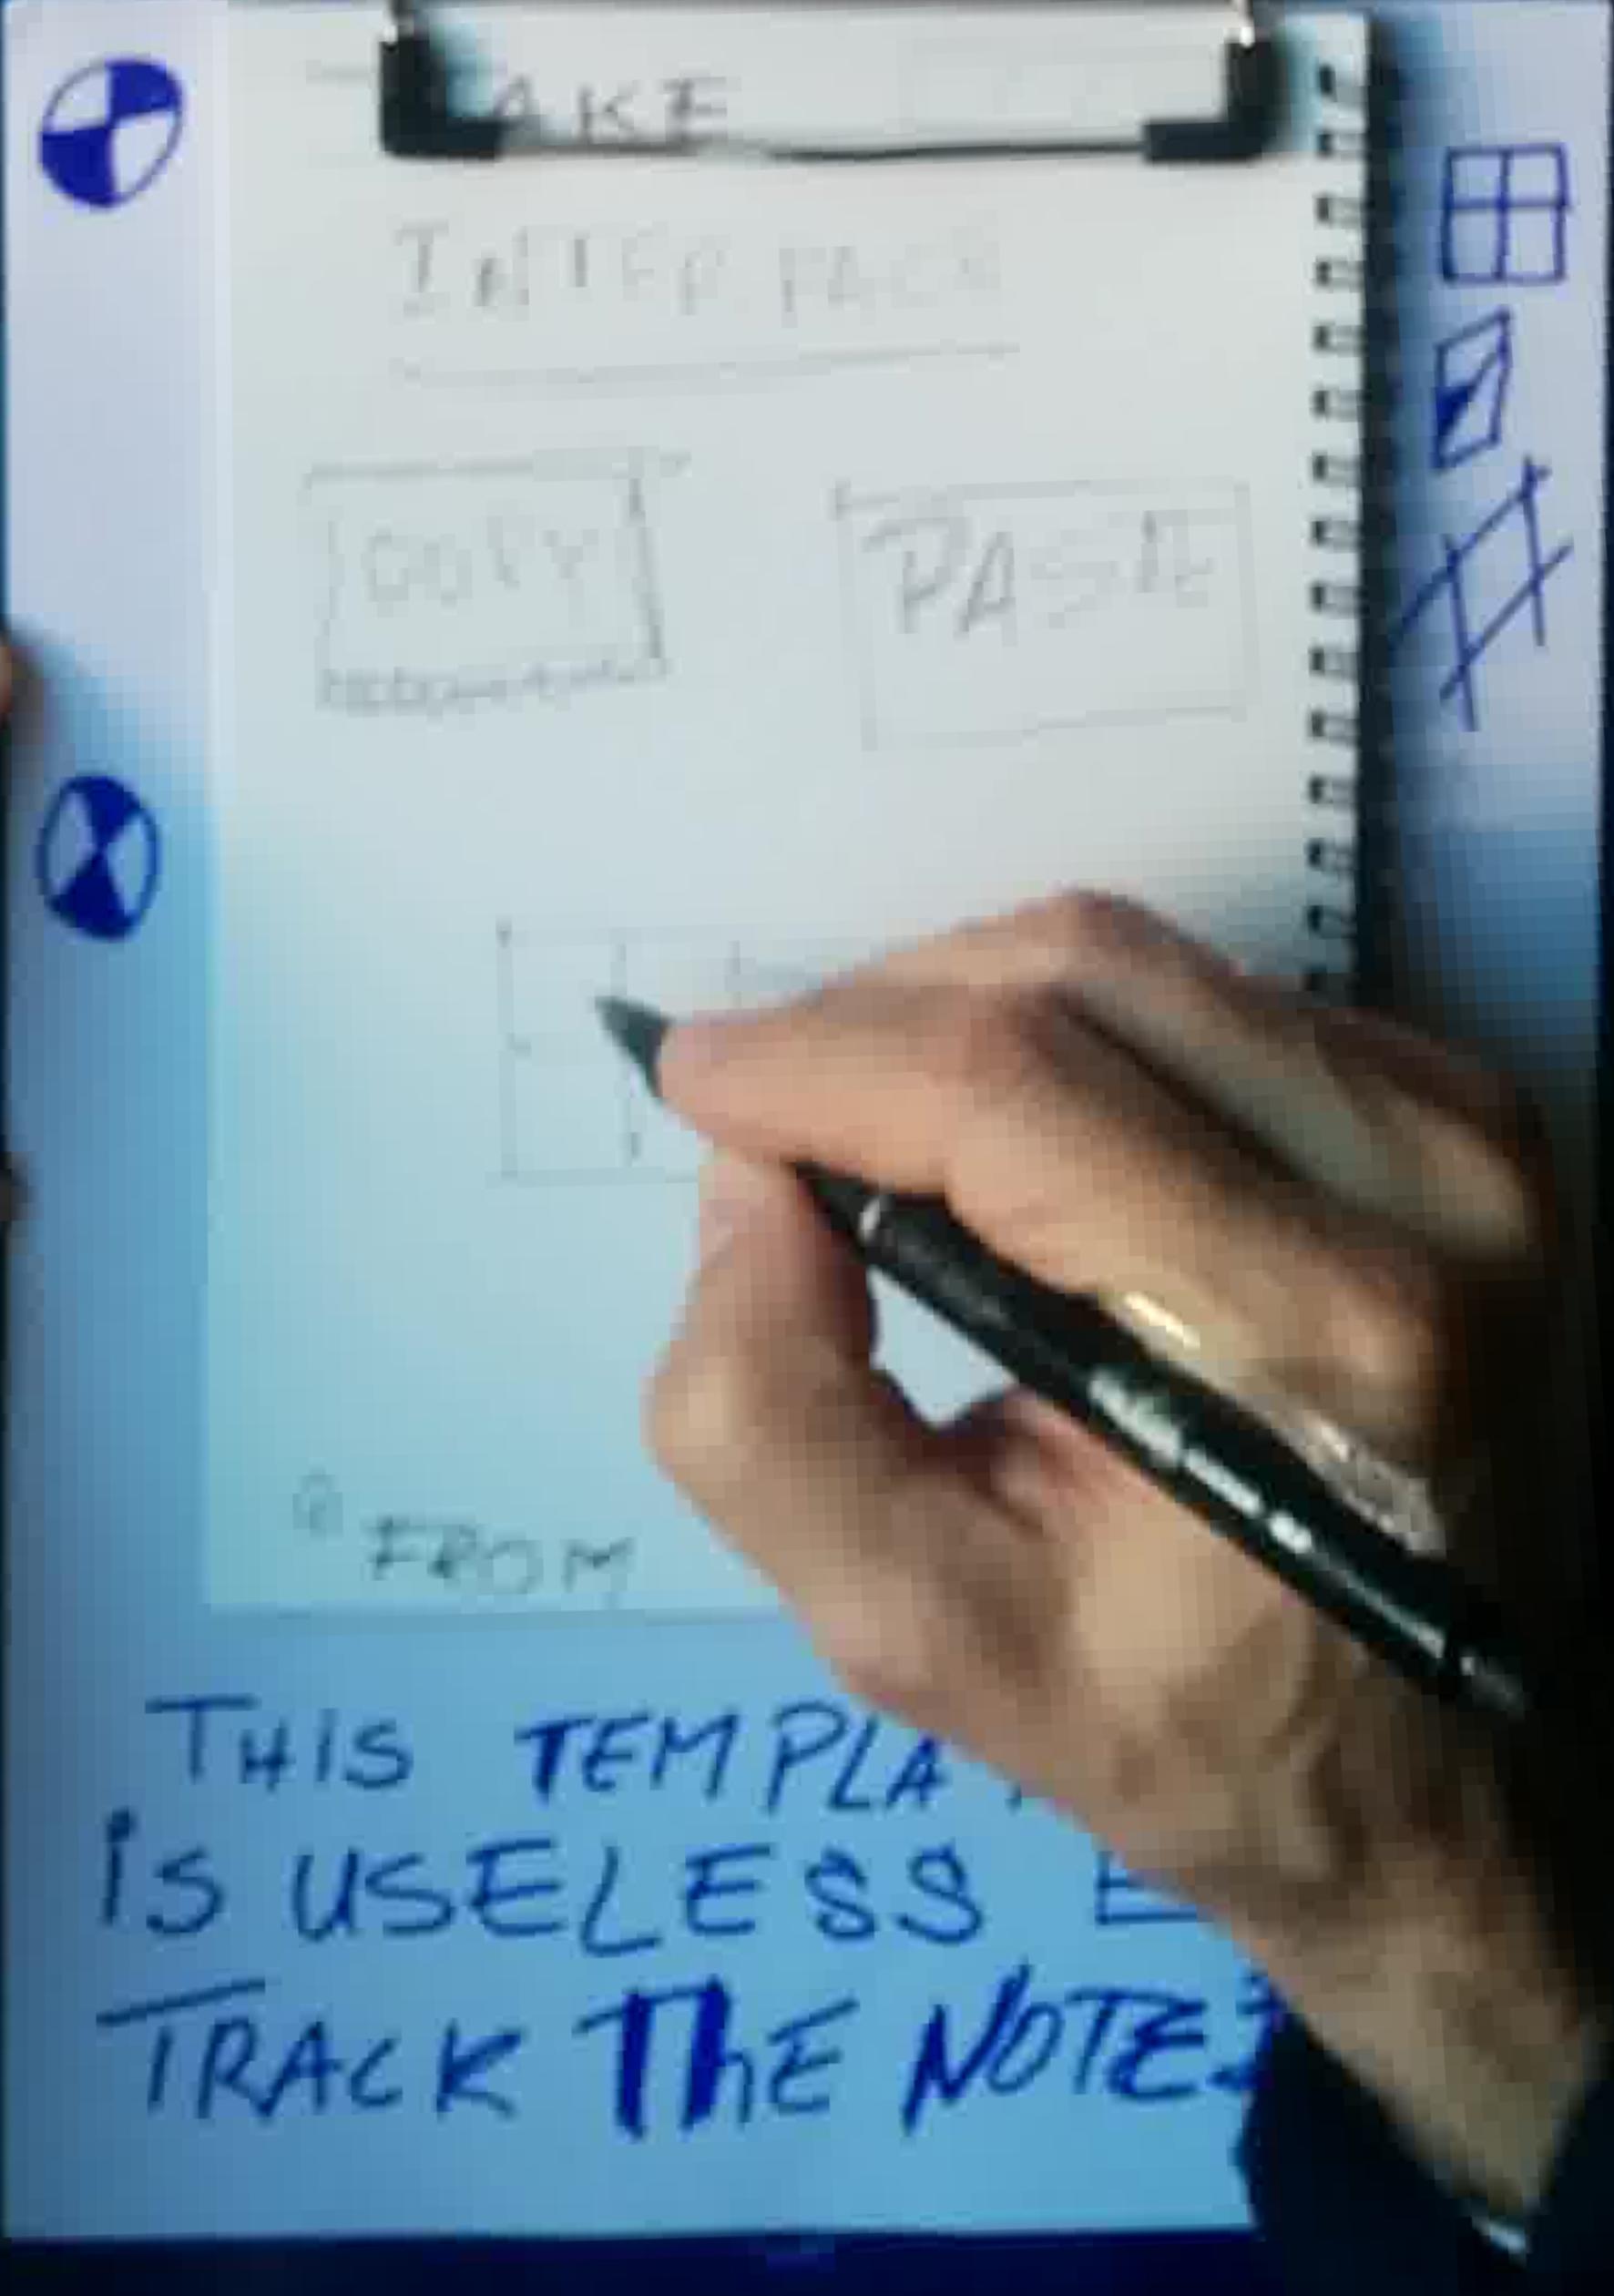 AKE
INTERFACE
COPY PASTE
FROM
THIS TEMPLA
IS USELESS
TRACK THE NOTES